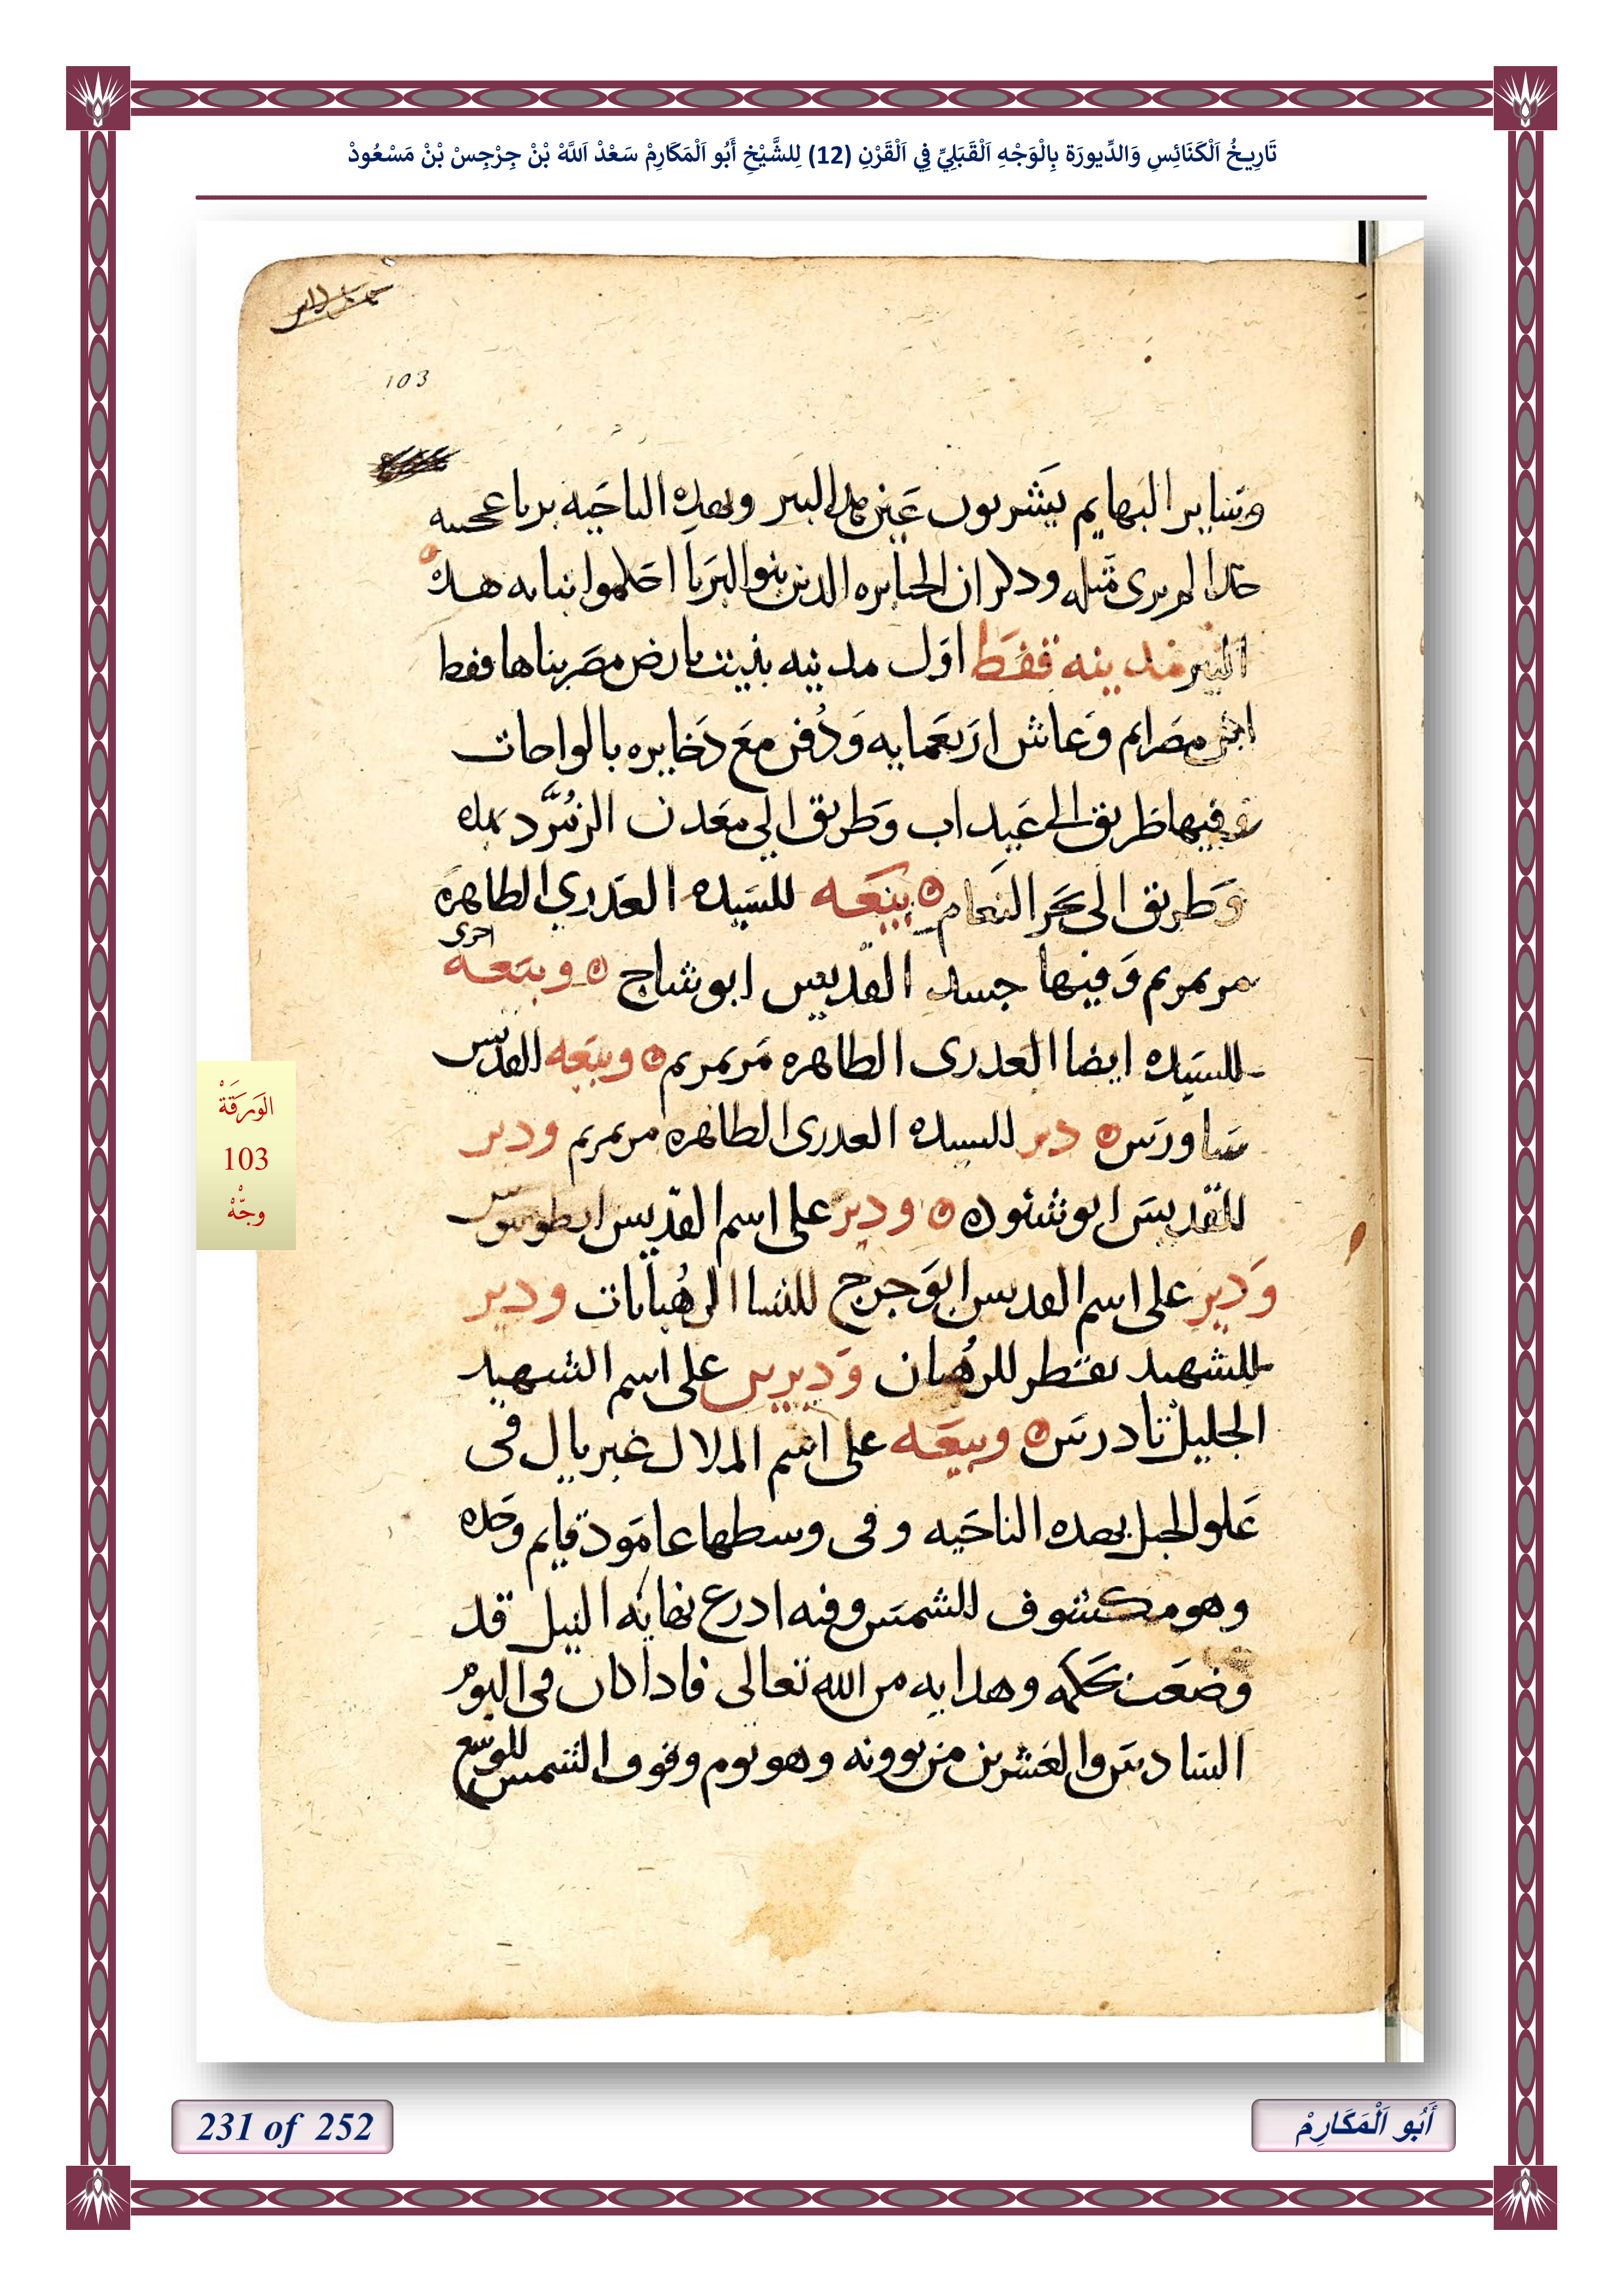 تَارِيخُ اَلْكَنَائِسِ وَالدِّيورَة بِالْوَجْهِ اَلْقَبَلِيِّ فِي اَلْقَرْنِ (12) لِلشَّيْخِ أَبُو اَلْمَكَارِمْ سَعْدْ اَللَّهْ بْنْ جِرْجِسْ بْنْ مَسْعُودْ
103
وسَاير البهايم يَشربون عَين هذا البير وبهده الناحَيه بربا عجيبه
جدا لم يرى مثله ودكر ان الجبابره الدين بنوا البَربا احَكموا بنايه هده
البير مدينه قفط اوَل مدينه بنيت بارض مصَر بناها قفط
ابن مصَرايم وَعاش اربَعمايه وَدُفن معَ دَخايره بالواحات
وفيها طَريق الى عَيداب وَطريق الي معَدن الزمُرَّد
وَطريق الى بَحَر النَعام بيَعَه للسَيده العَدري الطاهَرة
مرتمريم وَفيها جسد القديس ابو شاج وبيَعَه اخرى
للسَيده ايضا العَدرى الطاهره مَرتمريم وبيَعَه القديَس
سَاورَس دير للسيده العدرى الطاهره مرتمريم ودير
للقديسَ ابو شنوده ودير على اسم القدّيس
وَدير على اسم القديس ابوَ جرج للنسا الرهُبانات ودير
للشهيد تقطر للرهُبان وَديرين على اسم الشهيد
الجليل تادرسَ وبيَعَه على اسم الملاك غبريال فى
عَلو الجبل بهده الناحَيه وفى وسطها عامَود قايم وحَده
وهو مكشوف للشمسَ وفيه ادرع نهاية النيل قد
وضعَت بحَكمه وهدايه من الله تعالى فادا كان فى اليوم
السَادسَ والعَشرين من بوونه وهو يوم وقوف الشمس
الوَرَقَةْ
103
وجّهْ
231 of 252
أَبُو اَلْمَكَارِمْ